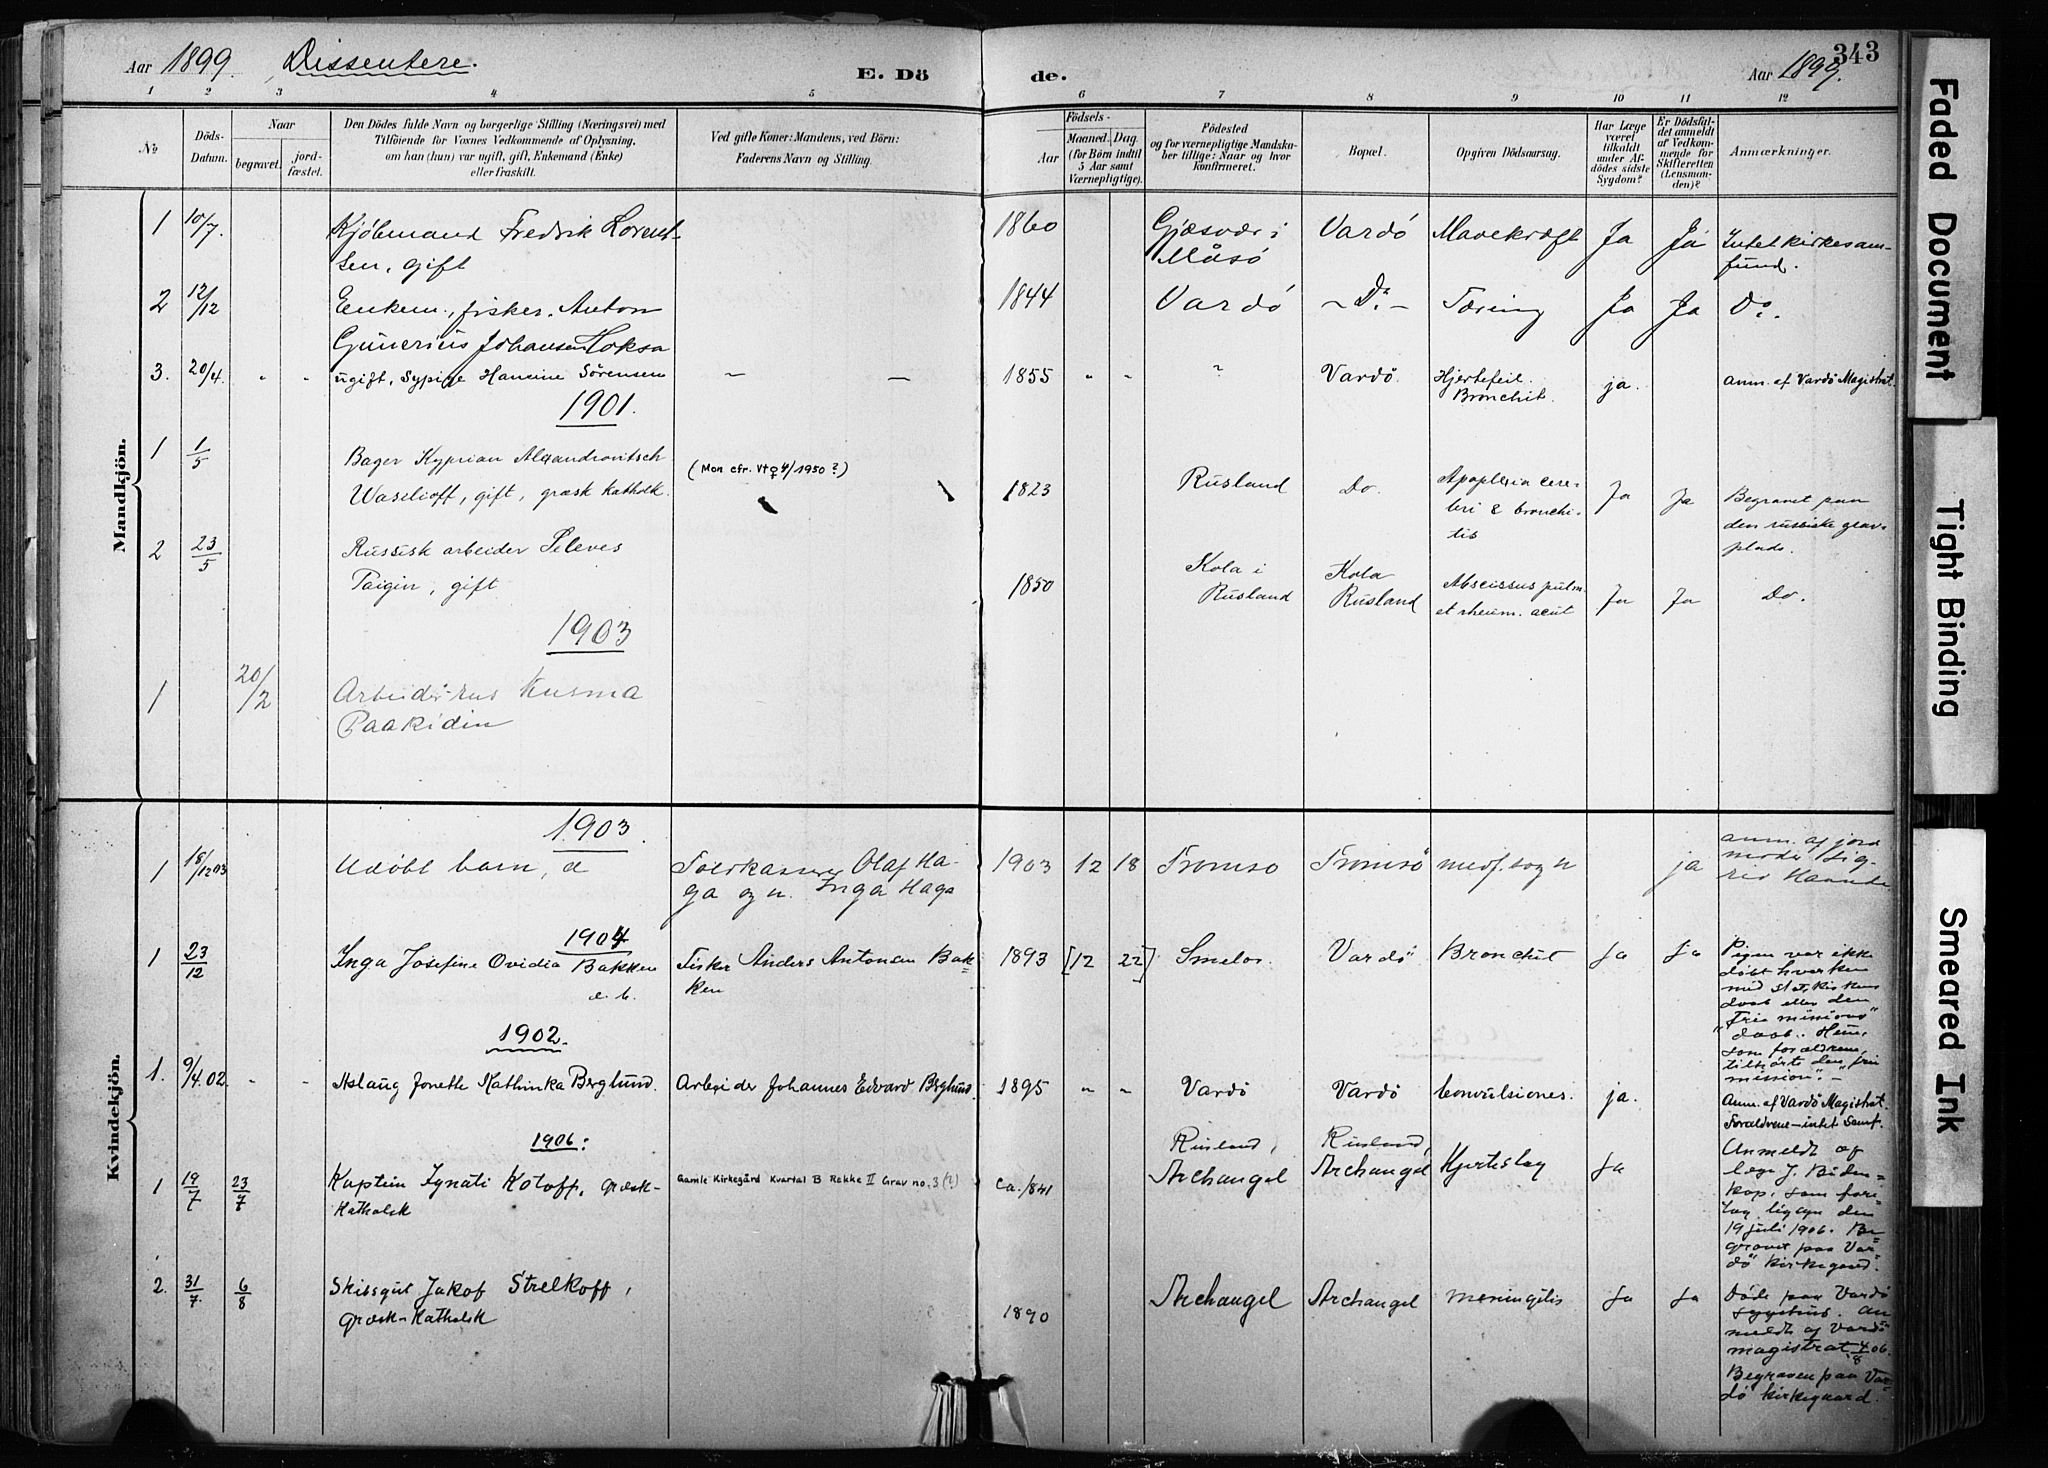 Aar 1899. Dissentere. E. Dö de. Aar 1899. 343
1 2 3 4 5 6 7 8 9 10 11 12
No
Döds-Datum.
Naar
begravet.
jord-fæstet.
Den Dödes fulde Navn og borgerlige Stilling (Næringsvei) med
Tilföiende for Voxnes Vedkommende af Oplysning,
om han (hun) var ugift, gift, Enkemand (Enke)
eller fraskilt.
Ved gifte Koner: Mandens, ved Börn:
Faderens Navn og Stilling.
Födsels-
Aar
Maaned. Dag.
(for Börn indtil
5 Aar samt
Værnepligtige).
Födested
og for værnepligtige Mandsku-
ber tillige: Naar og hvor
konfirmeret.
Bopæl.
Opgiven Dödsaarsag.
Har Læge
været
tilkaldt
under Af-
dödes sidste
Sygdom?
Er Dödsfal-
det anmeldt
af Vedkom-
mende for
Skifteretten
(Lensman-
den)?
Anmærkninger.
Mandkjön.
1 10/7. Kjöbmand Fredrik Lorent- 1860 Gjæsvær i Vardö Mavekræft Ja Ja Intet kirkesam-
sen, gift Måsö fund.
2 12/12 Enkem., fisker, Anton 1844 Vardö - Do. - Tæring Ja Ja Do.
Gunerius Johansen Hoksa
3. 20/4. " " ugift, Sypige Hansine Sörensen — — 1855 " " " Vardö. Hjertefeil. ja. anm. af Vardö Magistrat.
Bronchit.
1901.
1 1/5 Bager Kyprian Alexandrovitsch (Mon cfr. Vt ♀ 4/1950?)
Wasilioff, gift, græsk katholk. 1823 Rusland Do. Apoplexia cere- Ja Ja Begravet paa
bri & bronchi- den russiske grav-
tis plads.
2 23/5 Russisk arbeider Seleves
Paigin, gift 1850 Kola i Kola Abscissus pulm. Ja Ja Do.
Rusland Rusland et rheum. acut
1903
1 20/2 Arbeider-rus Kusma
Paakidin
Kvindekjön.
1903.
1 18/12 03 Udöbt barn, d Toldkasserer Olaf Ha- 1903 12 18 Tromsö Tromsö medf. svagh ja anm. af jord
ga og h. Inga Haga moder
1904
1 23/12 Inga Josefine Ovidia Bakken Fisker Anders Antonsen Bak- 1893 [12 22] Smelor. Vardö Bronchit Ja Ja Pigen var ikke
d. b. ken döbt hverken
med statskirkens
daab eller den
"Frie missions"
daab. Hun,
som forældrene,
tilhörte den "frie
mission". —
1902.
1. 9/4.02. " " Aslaug Jonette Kathinka Berglund. Arbeider Johannes Edvard Berglund. 1895 " " Vardö Vardö Convulsiones. ja. Anm. af Vardö Magistrat.
Forældrene - intet Samf.
1906:
1 19/7 23/7 Kaptein Ignati Kotoff, græsk- Gamle Kirkegård Kvartal B Rekke II Grav no. 3 (?) ca. 1841 Rusland, Archangel Rusland, Archangel Hjerteslag Ja Anmeldt af
katholsk læge J. Biden-
kap, som fore-
tog ligsyn den
19 juli 1906. Be-
gravet paa Var-
dö kirkegaard.
2. 31/7. 6/8 Skibsgut Jakof Strelkoff, 1890 Archangel Archangel meningitis Ja Ja Döde paa Vardö
græsk-katholsk sygehus. An-
meldt af Vardö
magistrat 4/8 06.
Begraven paa Var-
dö kirkegaard.
Faded Document
Tight Binding
Smeared Ink